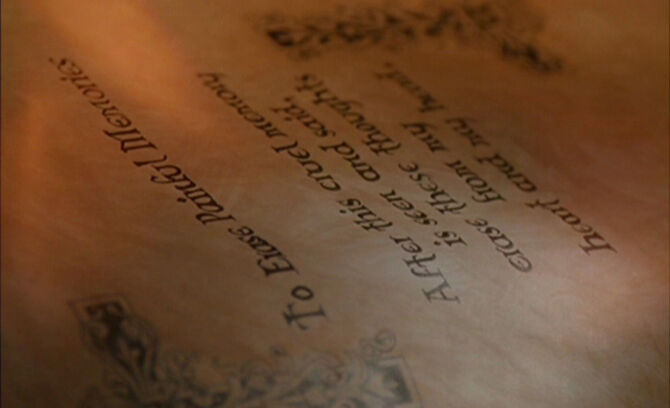 To Erase Painful Memories
After this cruel memory
is seen and said,
erase these thoughts
from my
heart and my head.